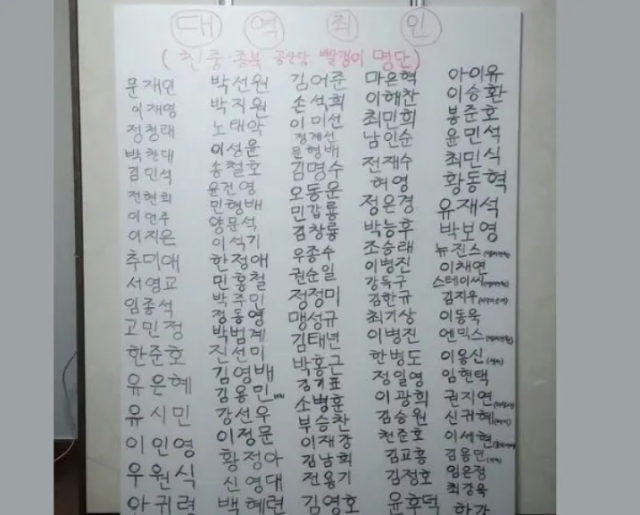 대 역 죄 인
(친중·종북 공산당 빨갱이 명단)
문재인 박선원 김어준 마은혁 아이유
이재명 박지원 손석희 이해찬 이승환
정청래 노태악 이미선 최민희 봉준호
박찬대 이상윤 정계선 남인순 윤민석
김민석 송철호 문형배 전재수 최민식
전현희 윤건영 김명수 허영 황동혁
이언주 민형배 오동운 정은경 유재석
이지은 양문석 민갑룡 박능후 박보영
추미애 이석기 김창룡 조승래 뉴진스
서영교 한정애 우종수 이병진 이채연
임종석 민홍철 권순일 강득구 스테이씨
고민정 박주민 정정미 김한규 김지우
한준호 정동영 맹성규 최기상 이동욱
유은혜 박범계 김태년 이병진 엔믹스
유시민 진선미 박홍근 한병도 이용신
이인영 김영배 정일영 임현택
우원식 김용민 소병훈 이광희 권지연
안귀령 강선우 부승찬 김승원 신귀혜
이정문 이재강 천준호 이세현
황정아 김남희 김교흥 김용민
신영대 전용기 김정호 임은정
백혜련 김영호 윤후덕 최강욱
한강